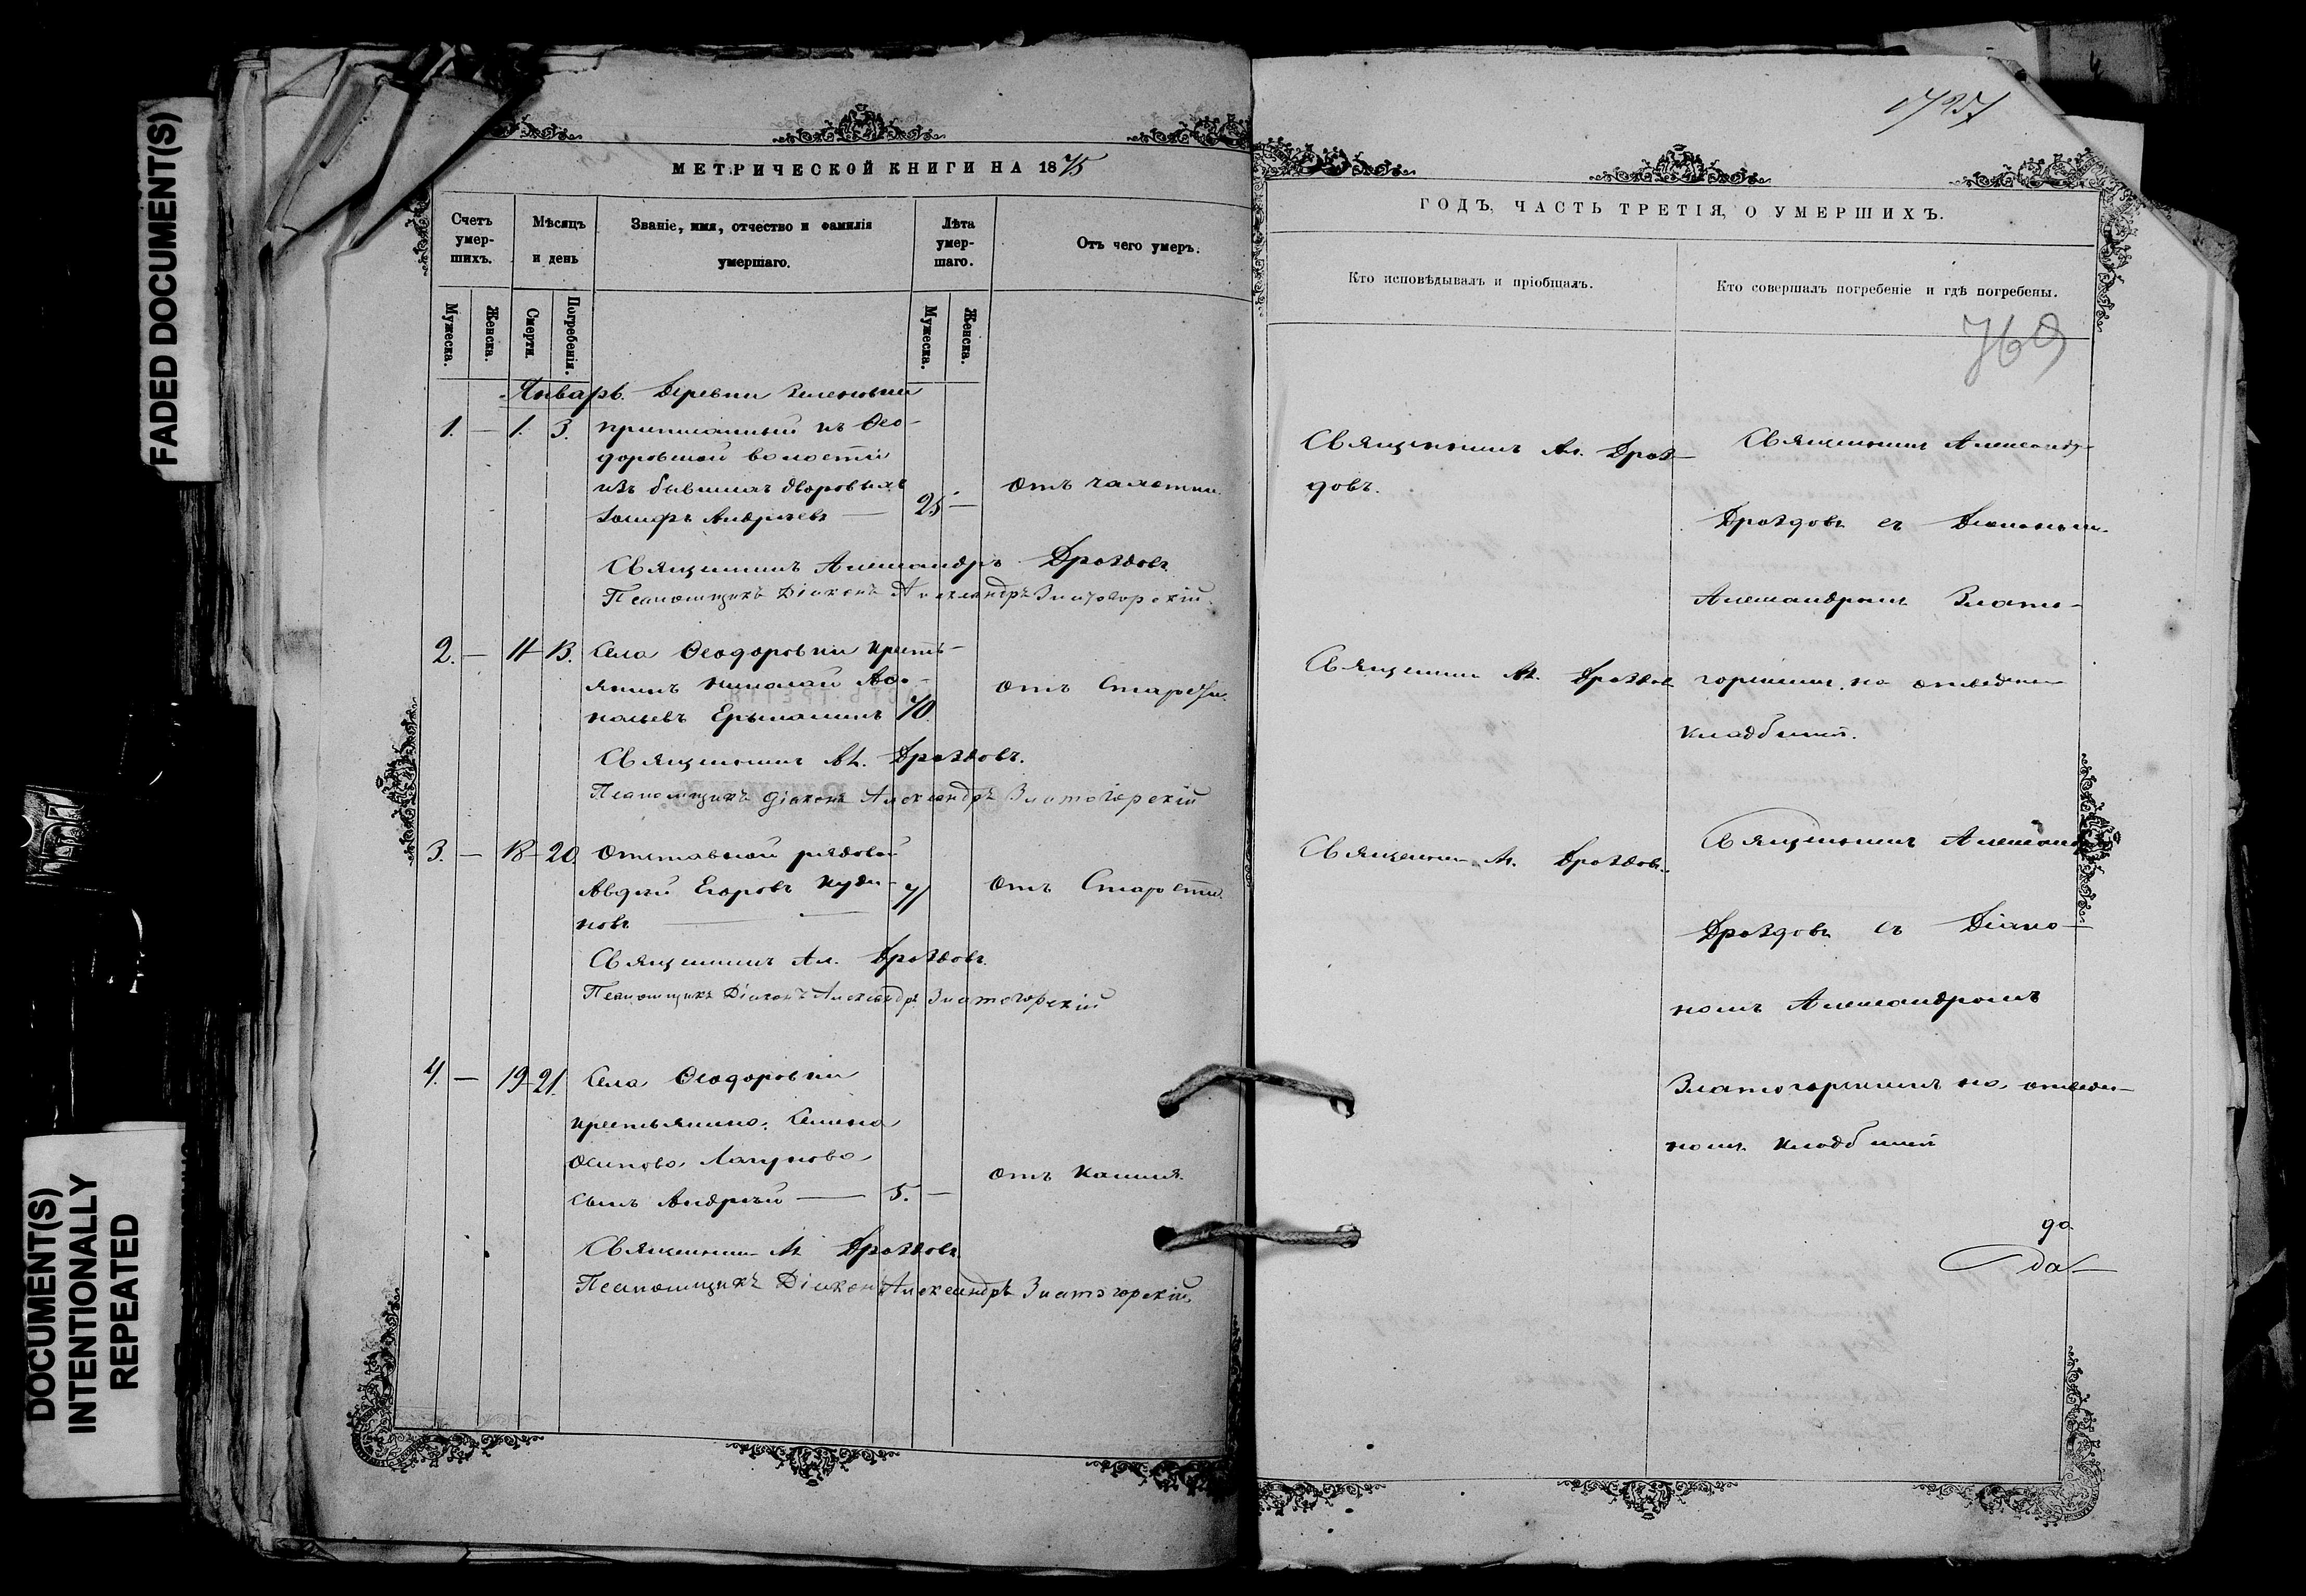 FADED DOCUMENT(S)
DOCUMENT(S)
INTENTIONALLY
REPEATED
МЕТРИЧЕСКОЙ КНИГИ НА 1875
Счетъ умер-шихъ.
Мѣсяцъ и день
Званіе, имя, отчество и фамилія умершаго.
Лѣта умер-шаго.
Отъ чего умеръ.
Мужеска.
Женска.
Смерти.
Погребенія.
Мужеска.
Женска.
Январь. Деревни
1. — 1. 3. приписанный къ Ѳео-
доровской волости
изъ бывшихъ дворовыхъ
Іосифъ Андреевъ — 25 — отъ чахотки.
Священникъ Александръ Дроздовъ
Псаломщикъ Діаконъ Александръ Златогорскій.
2. — 11 13. Села Ѳеодоровки кресть-
янинъ Николай Аѳа-
насьевъ 70. отъ Старости.
Священникъ Ал. Дроздовъ.
Псаломщикъ діаконъ Александръ Златогорскій
3. — 18 20 Отставной рядовой
Авдѣй Егоровъ Куди-
новъ 71 отъ Старости.
Священникъ Ал. Дроздовъ.
Псаломщикъ Діаконъ Александръ Златогорскій
4. — 19 21. Села Ѳеодоровки
крестьянина Семена
Осипова Лагунова
сынъ Андрей — 5. — отъ Кашля.
Священникъ Ал. Дроздовъ
Псаломщикъ Діаконъ Александръ Златогорскій
ГОДЪ, ЧАСТЬ ТРЕТІЯ, О УМЕРШИХЪ.
Кто исповѣдывалъ и пріобщалъ.
Кто совершалъ погребеніе и гдѣ погребены.
769
Священникъ Ал. Дроз-
довъ.
Священникъ Ал. Дроздовъ
Священникъ Ал. Дроздовъ.
Священникъ Александръ
Дроздовъ съ Діакономъ
Александромъ Злато-
горскимъ на отведенномъ
кладбищѣ.
Священникъ Александръ
Дроздовъ съ Діако-
номъ Александромъ
Златогорскимъ на отведен-
номъ кладбищѣ